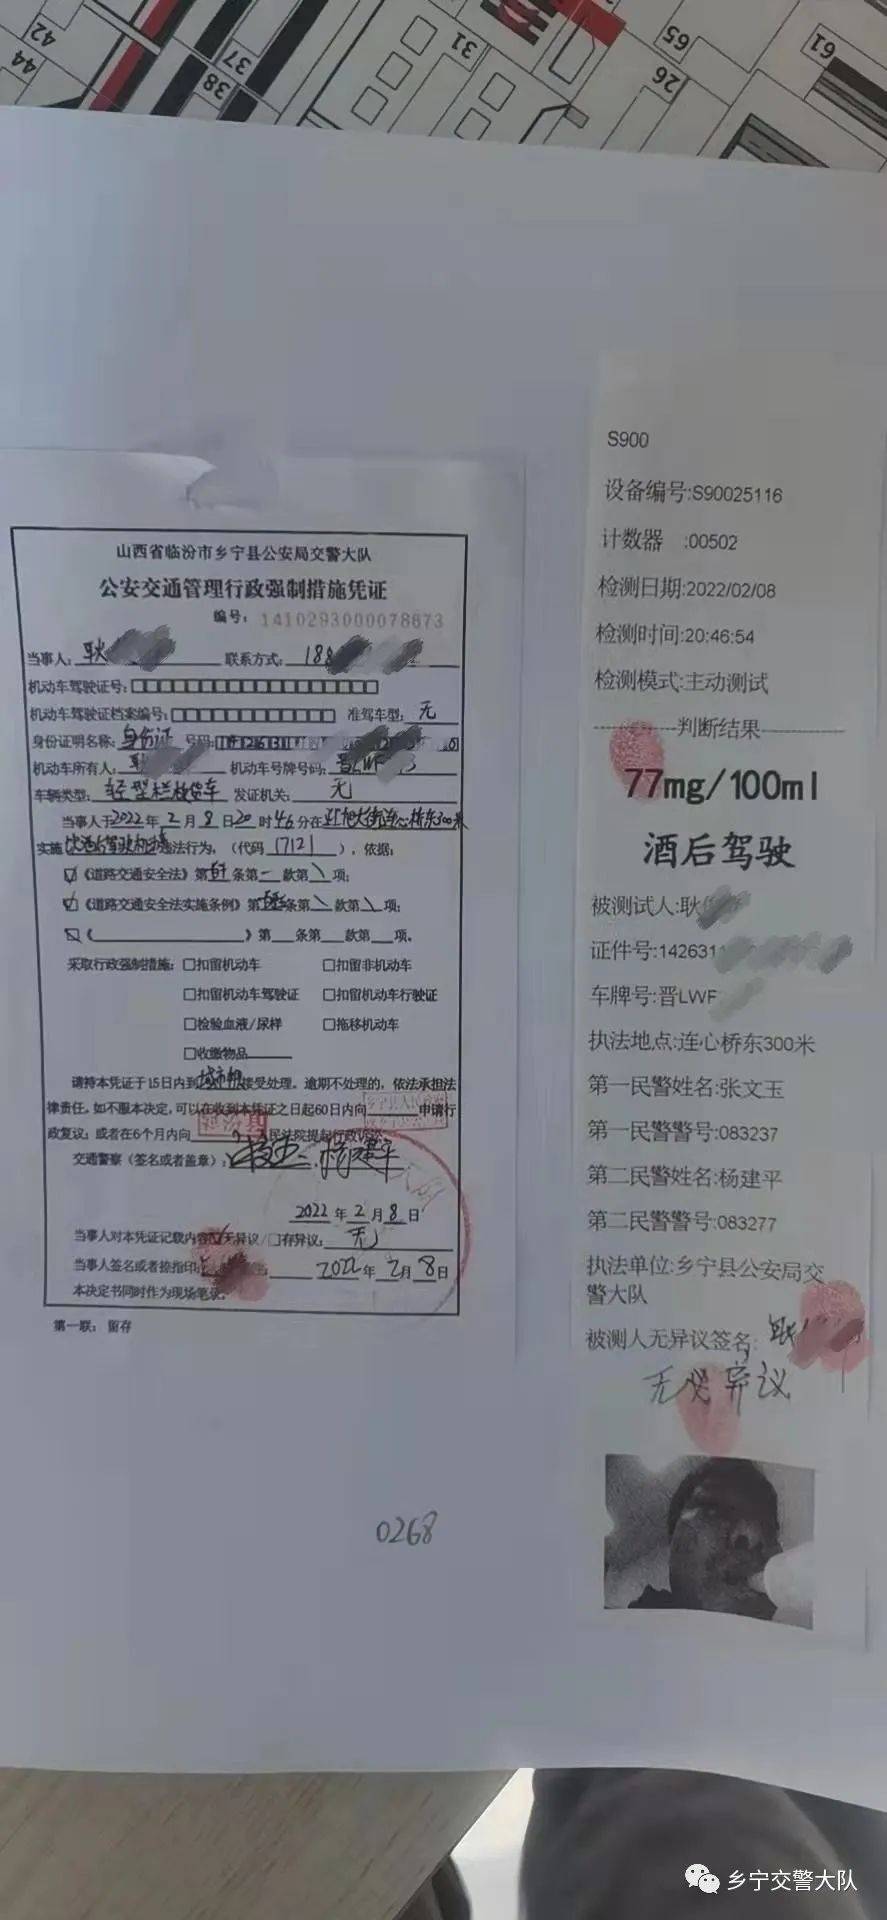 42
44
37
38
31
65
26
61
山西省临汾市乡宁县公安局交警大队
公安交通管理行政强制措施凭证
编号: 1410293000078673
当事人: 耿 联系方式: 188
机动车驾驶证号:
机动车驾驶证档案编号: 准驾车型: 无
身份证明名称: 身份证 号码:
机动车所有人: 耿 机动车号牌号码: 晋LWF
车辆类型: 轻型栏板货车 发证机关: 无
当事人于2022年2月8日20时46分在 大街连心桥东300米
实施 饮酒后驾驶机动车 违法行为,(代码 1712),依据:
《道路交通安全法》第 条第一款第 项;
《道路交通安全法实施条例》第 条第 款第 项;
《 》第 条第 款第 项。
采取行政强制措施: 口扣留机动车 口扣留非机动车
口扣留机动车驾驶证 口扣留机动车行驶证
口检验血液/尿样 口拖移机动车
口收缴物品
请持本凭证于15日内到 接受处理。逾期不处理的,依法承担法
律责任。如不服本决定,可以在收到本凭证之日起60日内向 乡宁县人民政府 申请行
政复议; 或者在6个月内向 人民法院提起行政诉讼。
交通警察(签名或者盖章):
2022年2月8日
当事人对本凭证记载内容 无异议/口存异议: 无
当事人签名或者捺指印: 2022年2月8日
本决定书同时作为现场笔录。
第一联: 留存
0268
S900
设备编号:S90025116
计数器 :00502
检测日期:2022/02/08
检测时间:20:46:54
检测模式:主动测试
-----------判断结果-----------
77mg/100ml
酒后驾驶
被测试人:耿
证件号:142631
车牌号:晋LWF
执法地点:连心桥东300米
第一民警姓名:张文玉
第一民警警号:083237
第二民警姓名:杨建平
第二民警警号:083277
执法单位:乡宁县公安局交
警大队
被测人无异议签名: 耿
无异议
乡宁交警大队